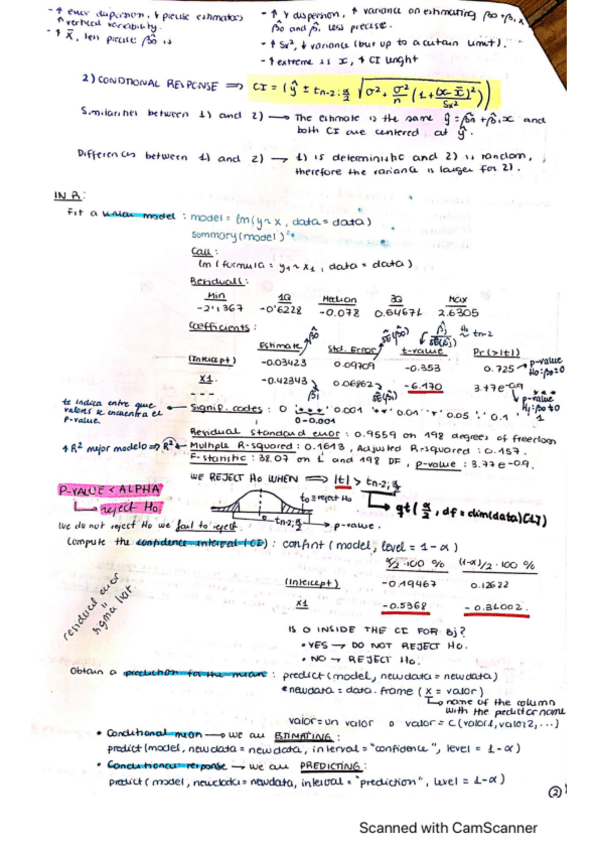 - ↑ error dispersion, ↓ precise estimates
↑ vertical variability.
- ↑ x̄, less precise β̂0 is
- ↑ Y dispersion, ↑ variance on estimating β0 + β1x
β0 and β1 less precise.
- ↑ Sx², ↓ variance (but up to a certain limit).
- ↑ extreme is x, ↑ CI lenght
2) CONDITIONAL RESPONSE ⟹ CI = (ŷ ± tn-2; α/2 √(σ² + σ²/n (1 + (x - x̄)²/Sx²)))
Similarities between 1) and 2) → The estimate is the same ŷ = β̂0 + β̂1x and
both CI are centered at ŷ.
Differences between 1) and 2) → 1) is deterministic and 2) is random,
therefore the variance is larger for 2).
IN R:
Fit a linear model : model = lm(y~x, data = data)
summary(model)
Call:
lm(formula = y1 ~ x1, data = data)
Residuals:
Min 1Q Median 3Q Max
-2'1367 -0'6228 -0.078 0.64671 2.6305
Coefficients: β̂0 ŜE(β̂0) β̂j/ŜE(β̂j) H0 ~ tn-2
Estimate Std. Error t-value Pr(>|t|)
(Intercept) -0.03423 0.09709 -0.353 0.725 → p-value H0: β0=0
x1 -0.42343 0.06862 -6.170 3.77e-09 p-value
--- β̂1 ŜE(β̂1) H1: β0≠0
te indica entre que
valores se encuentra el
P-value.
← Signif. codes: 0 '***' 0.001 '**' 0.01 '*' 0.05 '.' 0.1 ' ' 1
0-0.001
Residual standard error: 0.9559 on 198 degrees of freedom
↑ R² mejor modelo ⟹ R² ← Multiple R-squared: 0.1613, Adjusted R-squared: 0.157.
F-statistic: 38.07 on 1 and 198 DF, p-value: 3.77e-09.
WE REJECT H0 WHEN ⟹ |t| > tn-2; α/2
P-VALUE < ALPHA
↳ reject H0
to reject H0
0 tn-2; α/2 → p-value.
→ qt(α/2, df = dim(data)[1])
We do not reject H0 we fail to reject.
Compute the confidence interval (CI): confint(model, level = 1-α)
α/2 · 100 % (1-α)/2 · 100 %
(Intercept) -0.19467 0.12622
x1 -0.5368 -0.31002.
residual error
=
sigma hat
IS 0 INSIDE THE CI FOR βj?
• YES → DO NOT REJECT H0.
• NO → REJECT H0.
Obtain a prediction for the mean: predict(model, newdata = newdata)
* newdata = data.frame(x = valor)
↳ name of the column
with the predictor name
valor = un valor o valor = c(valor1, valor2, ...)
• Conditional mean → we are ESTIMATING:
predict(model, newdata = newdata, interval = "confidence", level = 1-α)
• Conditional response → we are PREDICTING:
predict(model, newdata = newdata, interval = "prediction", level = 1-α)
②
Scanned with CamScanner